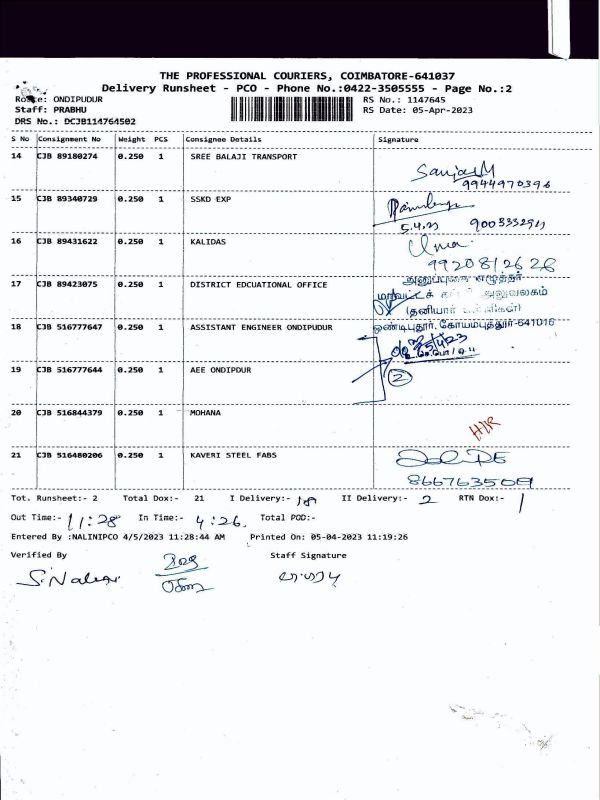 THE PROFESSIONAL COURIERS, COIMBATORE-641037
Delivery Runsheet - PCO - Phone No.:0422-3505555 - Page No.:2
Route: ONDIPUDUR
RS No.: 1147645
Staff: PRABHU
RS Date: 05-Apr-2023
DRS No.: DCJB114764502
S No Consignment No Weight PCS Consignee Details Signature
14 CJB 89180274 0.250 1 SREE BALAJI TRANSPORT
Sanjay M
9944970396
15 CJB 89340729 0.250 1 SSKD EXP
5.4.23
16 CJB 89431622 0.250 1 KALIDAS
Uma
9920812626
17 CJB 89423075 0.250 1 DISTRICT EDCUATIONAL OFFICE
அனுப்புகை எழுத்தர்
மாவட்டக் அலுவலகம்
(தனியார் பள்ளிகள்)
18 CJB 516777647 0.250 1 ASSISTANT ENGINEER ONDIPUDUR
ஒண்டிபுதூர், கோயம்புத்தூர்-641016
19 CJB 516777644 0.250 1 AEE ONDIPDUR
2
20 CJB 516844379 0.250 1 MOHANA
21 CJB 516480206 0.250 1 KAVERI STEEL FABS
866763509
Tot. Runsheet:- 2 Total Dox:- 21 I Delivery:- 18 II Delivery:- 2 RTN Dox:- 1
Out Time:- 11:28 In Time:- 4:26 Total POD:-
Entered By :NALINIPCO 4/5/2023 11:28:44 AM Printed On: 05-04-2023 11:19:26
Verified By Staff Signature